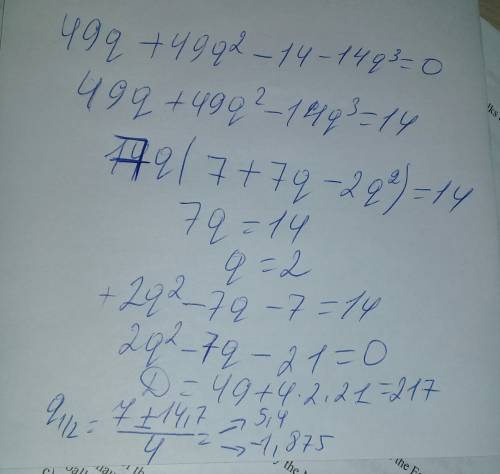 49q + 49q² - 14 - 14q³ = 0
49q + 49q² - 14q³ = 14
7q(7 + 7q - 2q²) = 14
7q = 14
q = 2
+2q² - 7q - 7 = 14
2q² - 7q - 21 = 0
D = 49 + 4·2·21 = 217
q1/2 = (7 ± 14,7)/4 = → 5,4 → -1,875